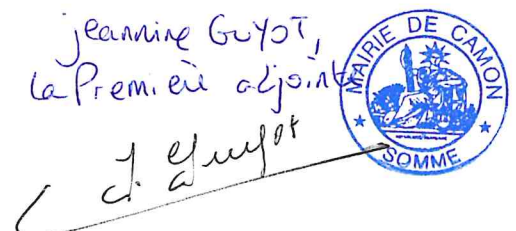 Jeannine GUYOT,
La Première adjointe
MAIRIE DE CAMON
SOMME
J. Guyot